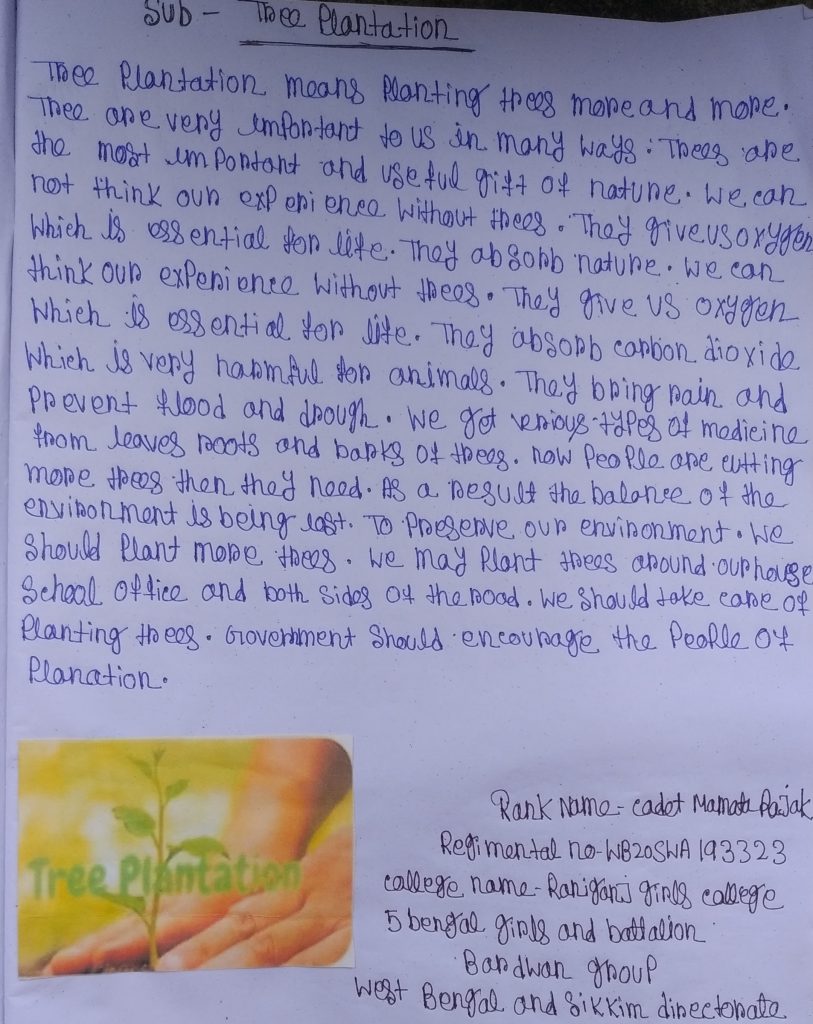 Sub - Tree Plantation
Tree Plantation means Planting trees more and more.
Tree are very important to us in many ways. Trees are
the most important and useful gift of nature. we can
not think our experience without trees. They give us oxygen
which is essential for life. They absorb nature. we can
think our experience without trees. They give us oxygen
which is essential for life. They absorb carbon dioxide
which is very harmful for animals. They bring rain and
prevent flood and drough. we get verious types of medicine
from leaves roots and barks of trees. now People are cutting
more trees then they need. As a result the balance of the
environment is being lost. To Preserve our environment. we
should Plant more trees. we may Plant trees around our house
School office and both sides of the road. we should take care of
Planting trees. Government should encourage the People of
Planation.
Tree Plantation
Rank Name - cadet Mamata Rajak
Regimental no - WB20SWA193323
college name - Raniganj girls college
5 bengal girls and battalion
Bardwan group
West Bengal and Sikkim directorate